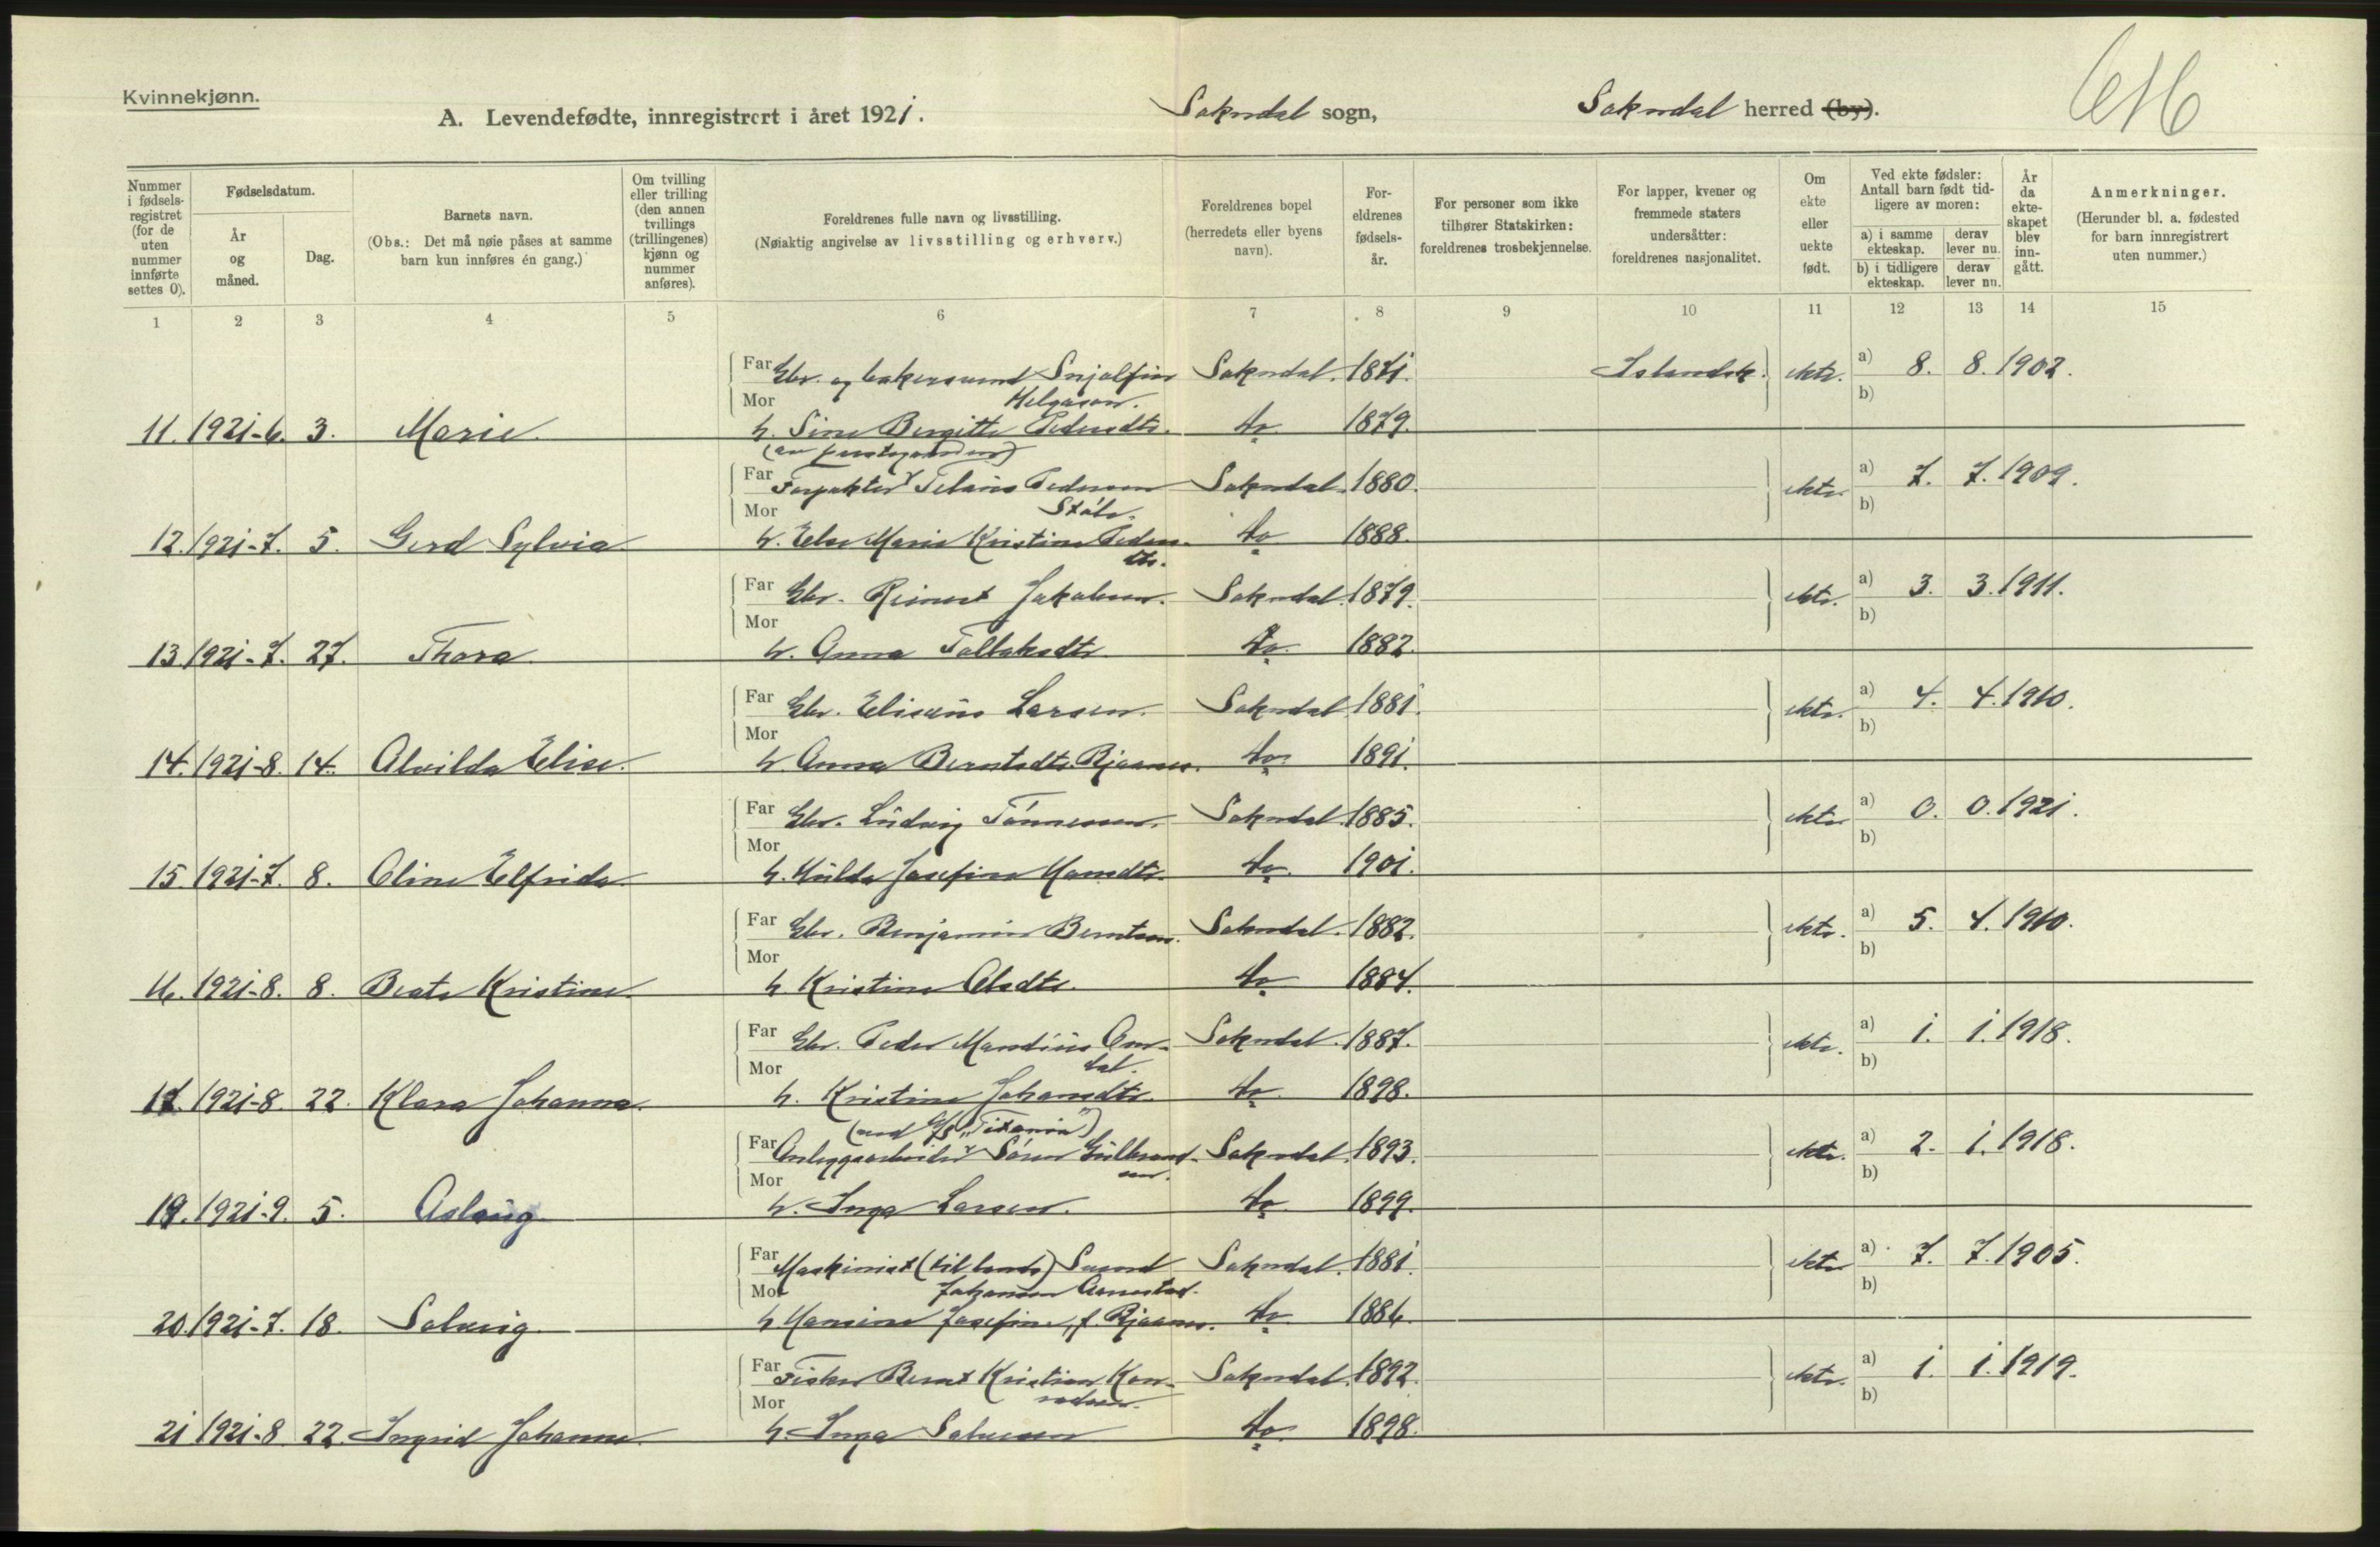 Kvinnekjønn.
A. Levendefødte, innregistrert i året 1921. Sokndal sogn, Sokndal herred (by).
Nummer i fødsels-registret (for de uten nummer innførte settes 0).
Fødselsdatum.
År og måned.
Dag.
Barnets navn.
(Obs.: Det må nøie påses at samme barn kun innføres én gang.)
Om tvilling eller trilling (den annen tvillings (trillingenes) kjønn og nummer anføres).
Foreldrenes fulle navn og livsstilling.
(Nøiaktig angivelse av livsstilling og erhverv.)
Foreldrenes bopel (herredets eller byens navn).
For-eldrenes fødsels-år.
For personer som ikke tilhører Statskirken: foreldrenes trosbekjennelse.
For lapper, kvener og fremmede staters undersåtter: foreldrenes nasjonalitet.
Om ekte eller uekte født.
Ved ekte fødsler: Antall barn født tid-ligere av moren:
a) i samme ekteskap. derav lever nu.
b) i tidligere ekteskap. derav lever nu.
År da ekte-skapet blev inn-gått.
Anmerkninger.
(Herunder bl. a. fødested for barn innregistrert uten nummer.)
1 2 3 4 5 6 7 8 9 10 11 12 13 14 15
Far Gbr. og Snjolfur Sokndal. 1871. Islandsk. ekte. a) 8. 8. 1902.
Mor Helgason. b)
11. 1921-6. 3. Marie. h. Sine Bergitte Pedersdtr. do 1879.
Far Forpakter Pedersen Sokndal. 1880. ekte. a) 7. 7. 1909.
Mor Ståle. b)
12. 1921-7. 5. Gerd Sylvia h. Else Marie Kristine Peders- do 1888.
dtr.
Far Gbr. Reinert Jakobsen. Sokndal. 1879. ekte. a) 3. 3. 1911.
Mor b)
13 1921-7. 27. Thora. h. Anna Tollaksdtr. do 1882.
Far Gbr. Eliseus Larsen. Sokndal. 1881. ekte. a) 4. 4. 1910.
Mor b)
14. 1921-8. 14. Alvilda Elise. h. Anna Berntsdtr. do 1891.
Far Gbr. Ludvig Tönnessen. Sokndal. 1885. ekte a) 0. 0. 1921.
Mor b)
15. 1921-7. 8. Oline Elfrida. h. Hulda Josefine Hansdtr. do. 1901.
Far Gbr. Benjamin Berntsen. Sokndal. 1882. ekte. a) 5. 4. 1910.
Mor b)
16. 1921-8. 8. Beate Kristine. h. Kristine Olsdtr. do 1884.
Far Gbr. Peder Mandius Om- Sokndal. 1887. ekte. a) 1. 1. 1918.
Mor dal. b)
17. 1921-8. 22. Klara Johanna. h. Kristine Johansdtr. do 1898.
(ved A/S "Titania")
Far Anleggsarbeider Sören Gulbrand- Sokndal. 1893. ekte. a) 2. 1. 1918.
Mor sen. b)
19. 1921-9. 5. Aslaug. h. Inga Larsen. do 1899.
Far Maskinist (til lands) Sokndal. 1881. ekte a) 7. 7. 1905.
Mor Johansen b)
20. 1921-7. 18. Solveig. h. Hansine Josefine, f. do 1886.
Far Fisker Bernt Kristian Kon- Sokndal. 1892. ekte. a) 1. 1. 1919.
Mor radsen. b)
21 1921-8 22. Ingrid Johanne. h. Inga Salvesen do. 1898.